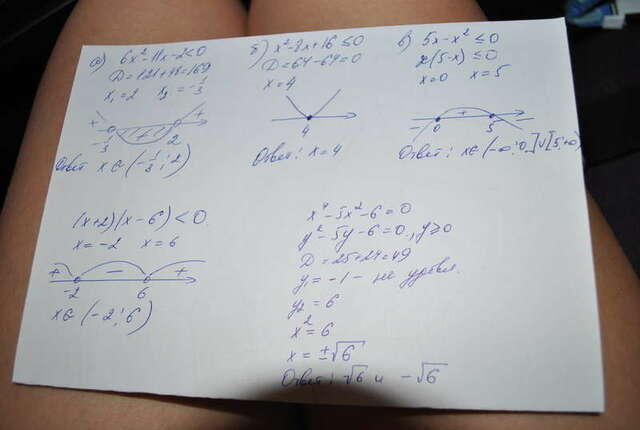 а) 6x²-11x-2<0
D=121+48=169
x₁=2 x₂=-1/3
+ +
-1/3 2
Ответ x∈(-1/3; 2)
б) x²-8x+16≤0
D=64-64=0
x=4
4
Ответ: x=4
в) 5x-x²≤0
x(5-x)≤0
x=0 x=5
- + -
0 5
Ответ: x∈(-∞;0]∪[5;+∞)
(x+2)(x-6)<0
x=-2 x=6
+ - +
-2 6
x∈(-2; 6)
x⁴-5x²-6=0
y²-5y-6=0, y≥0
D=25+24=49
y₁=-1 - не удовл.
y₂=6
x²=6
x=±√6
Ответ: √6 и -√6